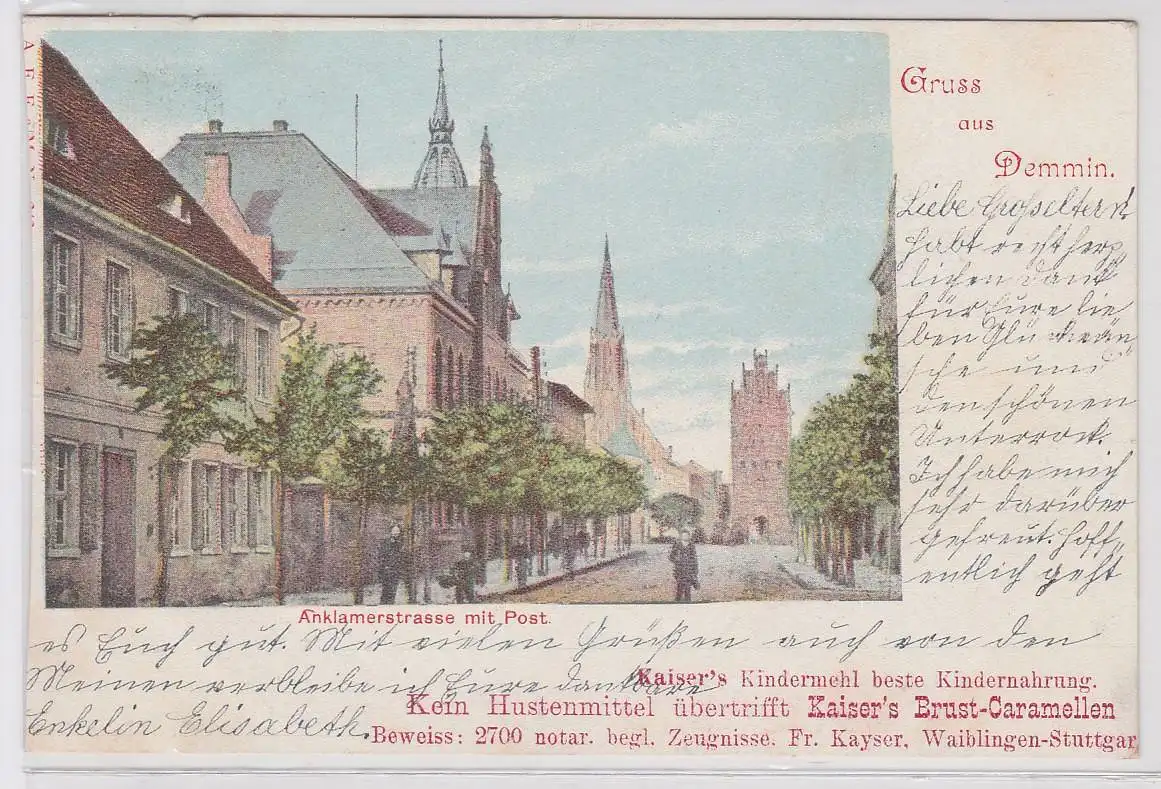 Gruss
aus
Demmin.
Liebe Großeltern
habt recht herz
lichen Dank
für Eure lie
ben Glückwün
sche und
den schönen
Unterrock.
Ich habe mich
sehr darüber
gefreut. Hoff„
entlich geht
Anklamerstrasse mit Post.
es Euch gut. Mit vielen Grüßen auch von den
Meinen verbleibe ich Eure dankbare
Enkelin Elisabeth.
Kaiser's Kindermehl beste Kindernahrung.
Kein Hustenmittel übertrifft Kaiser's Brust-Caramellen
Beweiss: 2700 notar. begl. Zeugnisse. Fr. Kayser, Waiblingen-Stuttgar